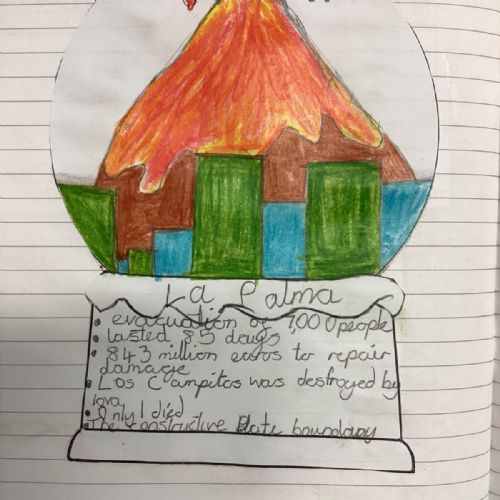 La Palma
• evacuation of 7000 people
• lasted 85 days
• 843 million euros to repair
damage
• Los Campitos was destroyed by
lava
• Only 1 died
The constructive plate boundary